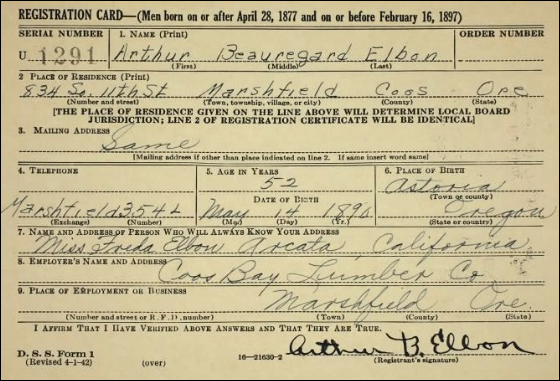 REGISTRATION CARD—(Men born on or after April 28, 1877 and on or before February 16, 1897)
SERIAL NUMBER 1. NAME (Print) ORDER NUMBER
U 1291 Arthur Beauregard Elbon
(First) (Middle) (Last)
2 PLACE OF RESIDENCE (Print)
834 So. 11th St Marshfield Coos Ore
(Number and street) (Town, township, village, or city) (County) (State)
[THE PLACE OF RESIDENCE GIVEN ON THE LINE ABOVE WILL DETERMINE LOCAL BOARD
JURISDICTION; LINE 2 OF REGISTRATION CERTIFICATE WILL BE IDENTICAL]
3. MAILING ADDRESS
Same
[Mailing address if other than place indicated on line 2. If same insert word same]
4. TELEPHONE 5. AGE IN YEARS 6. PLACE OF BIRTH
52 Astoria
DATE OF BIRTH (Town or county)
Marshfield 354L May 14 1890 Oregon
(Exchange) (Number) (Mo.) (Day) (Yr.) (State or country)
7. NAME AND ADDRESS OF PERSON WHO WILL ALWAYS KNOW YOUR ADDRESS
Miss Freda Elbon Arcata, California
8. EMPLOYER'S NAME AND ADDRESS
Coos Bay Lumber Co
9. PLACE OF EMPLOYMENT OR BUSINESS
Marshfield Ore.
(Number and street or R. F. D. number) (Town) (County) (State)
I AFFIRM THAT I HAVE VERIFIED ABOVE ANSWERS AND THAT THEY ARE TRUE.
D. S. S. Form 1
(Revised 4-1-42) (over) 16—21630-2 Arthur B. Elbon
(Registrant's signature)